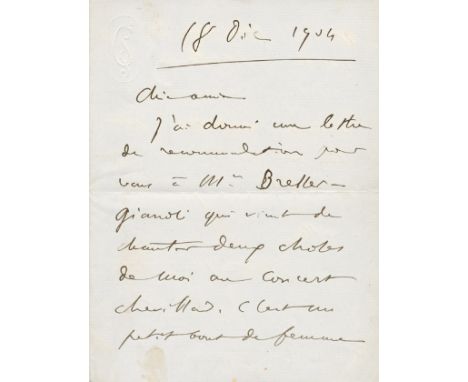 18 Dec 1904
chère amie
J'ai donné une lettre
de recommandation pour
vous à Mme Bressler-
Gianoli qui vient de
chanter deux choses
de moi au Concert
Chevillard. C'est un
petit bout de femme